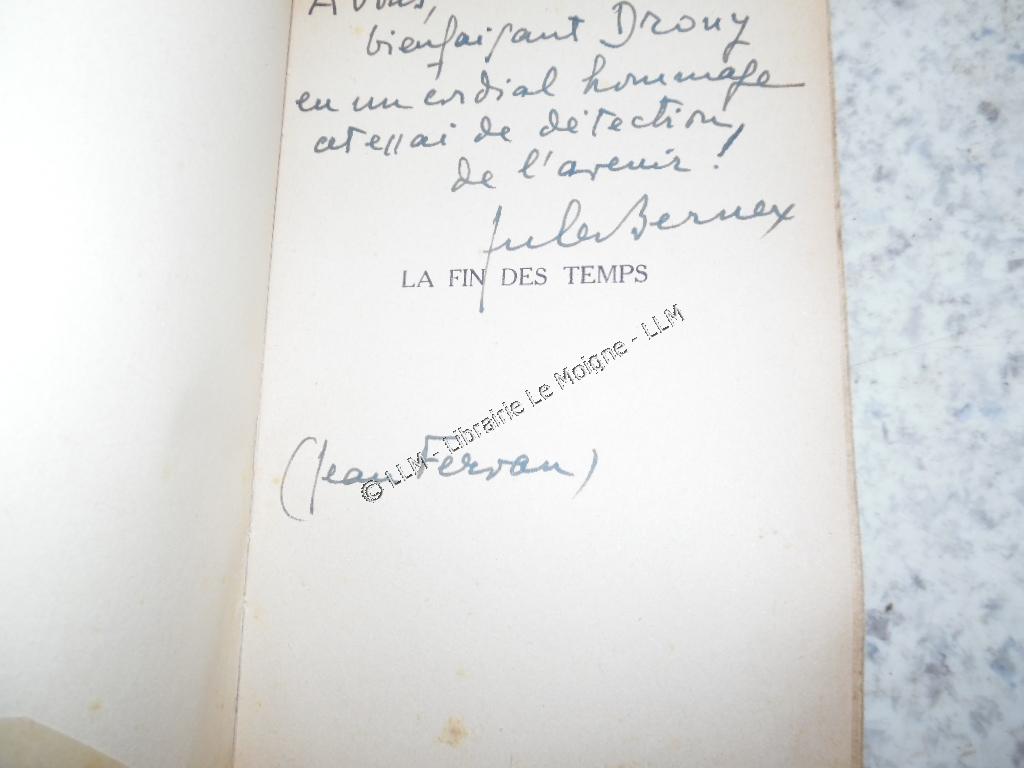 A vous,
bienfaisant Drouy
en un cordial hommage
cet essai de détection
de l'avenir !
Jules Bernex
LA FIN DES TEMPS
© LLM - Librairie Le Moigne - LLM
(Jean Fervan)